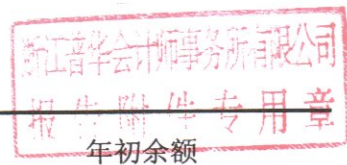 浙江普华会计师事务所有限公司
报告附件专用章
年初余额